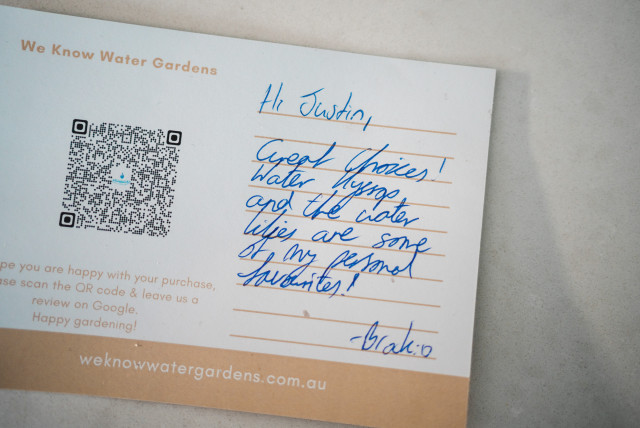 We Know Water Gardens
Hi Justin,
Great Choices!
Water Hyssop
and the water
lilies are some
of my personal
favourites!
pe you are happy with your purchase,
ase scan the QR code & leave us a
review on Google.
Happy gardening!
weknowwatergardens.com.au